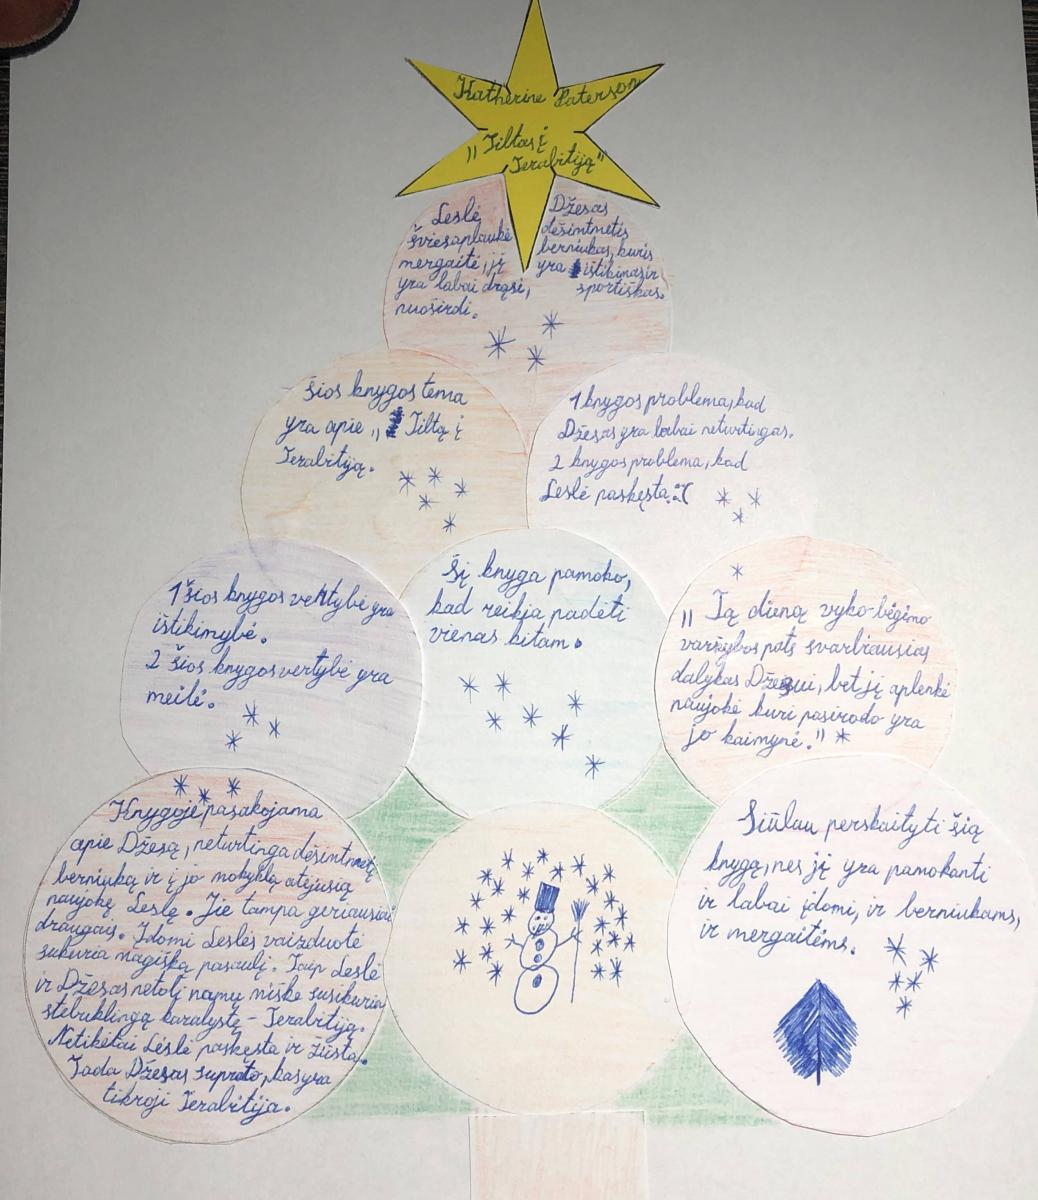 Katherine Paterson
„Tiltas į
Terabitiją"
Leslė
šviesiaplaukė
mergaitė, jį
yra labai drąsi,
nuoširdi.
Džesas
dešimtmetis
berniukas, kuris
yra ištikimas ir
sportiškas.
Šios knygos tema
yra apie „Tiltą į
Terabitiją.
1 knygos problema, kad
Džesas yra labai neturtingas.
2 knygos problema, kad
Leslė paskęsta. :(
1 šios knygos vertybė yra
ištikimybė.
2 šios knygos vertybė yra
meilė.
Šį knyga pamoko,
kad reikja padėti
vienas kitam.
„Tą dieną vyko bėgimo
varžybos pats svarbiausias
dalykas Džesui, bet jį aplenkė
naujokė kuri pasirodo yra
jo kaimynė."
Knygoje pasakojama
apie Džesą, neturtinga dešimtmetį
berniuką ir į jo mokyklą atėjusią
naujokę Leslę. Jie tampa geriausiai
draugais. Įdomi Leslės vaizduotė
sukuria magišką pasaulį. Taip Leslė
ir Džesas netolį namų miške susikuria
stebuklingą karalystę - Terabitiją.
Netikėtai Leslė paskęsta ir žūsta.
Tada Džesas suprato, kas yra
tikroji Terabitija.
Siūlau perskaityti šią
knygą, nes jį yra pamokanti
ir labai įdomi, ir berniukams,
ir mergaitėms.